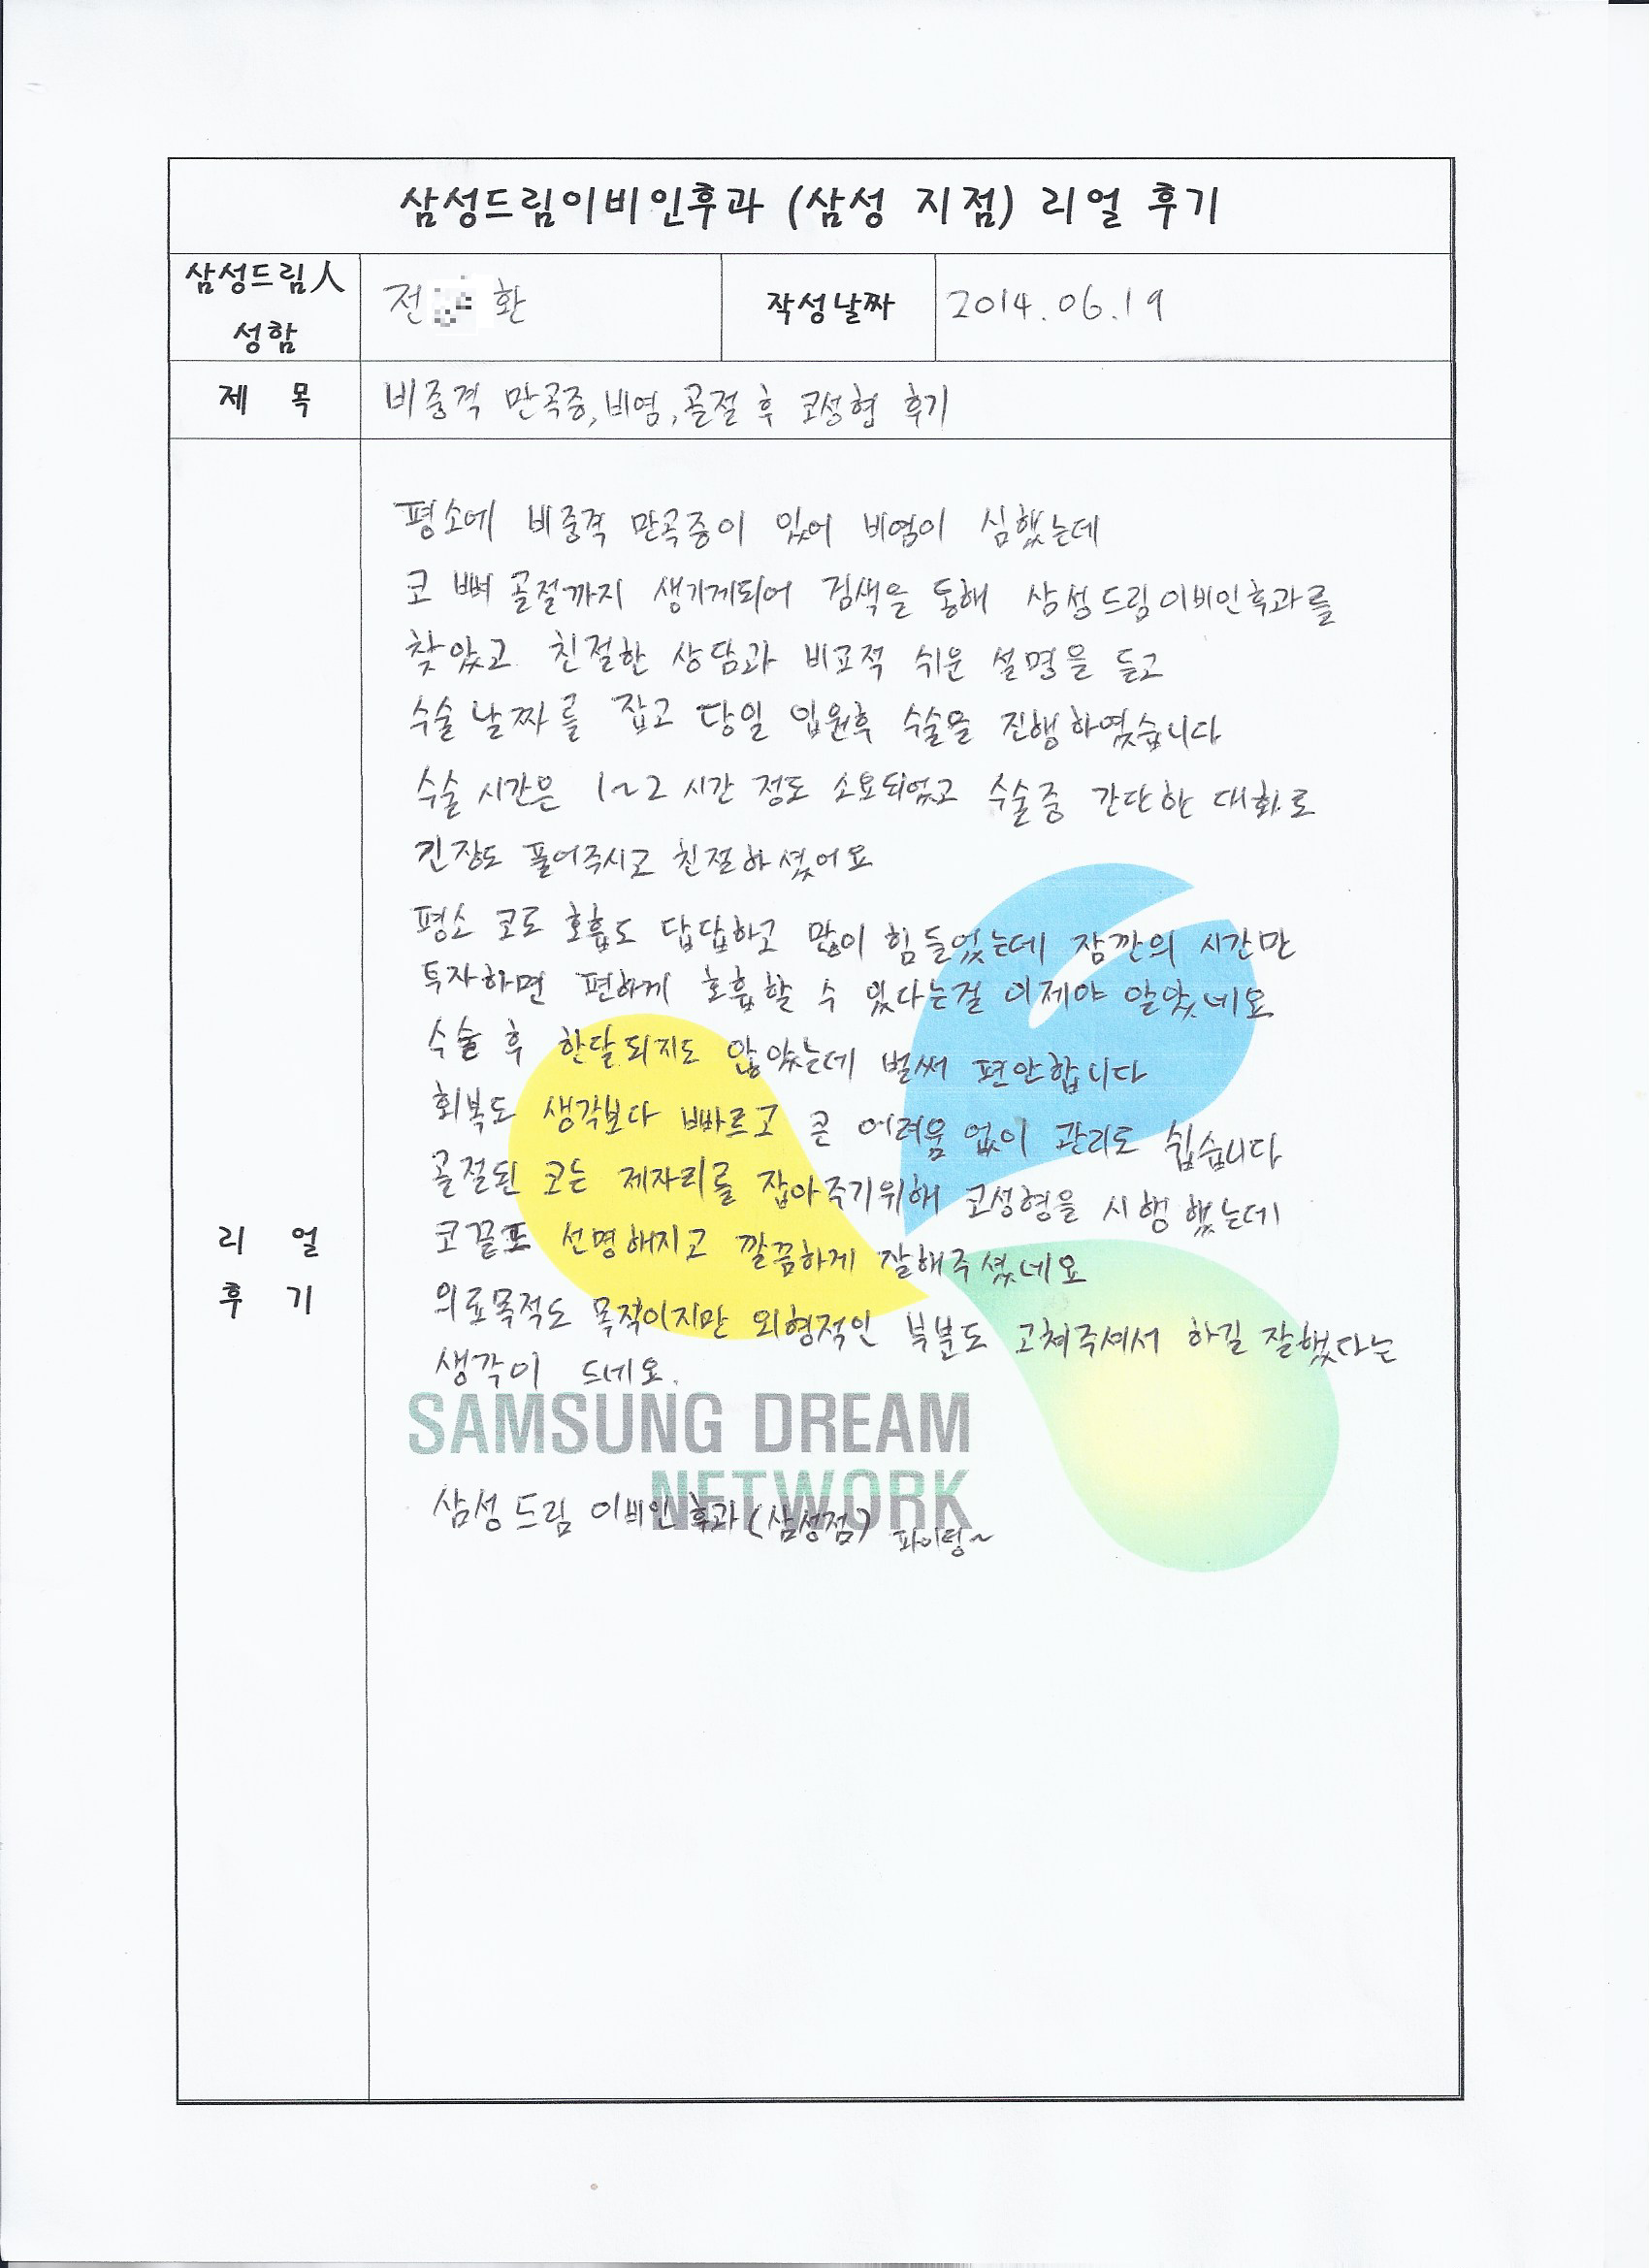 삼성드림이비인후과 (삼성 지점) 리얼 후기
삼성드림人
성함
전 환
작성날짜
2014.06.19
제 목
비중격 만곡증, 비염, 골절 후 코성형 후기
평소에 비중격 만곡증이 있어 비염이 심했는데
코 뼈 골절까지 생기게되어 검색을 통해 삼성드림이비인후과를
찾았고 친절한 상담과 비교적 쉬운 설명을 듣고
수술 날짜를 잡고 당일 입원후 수술을 진행하였습니다
수술 시간은 1~2 시간 정도 소요되었고 수술중 간단한 대화로
긴장도 풀어주시고 친절하셨어요
평소 코로 호흡도 답답하고 많이 힘들었는데 잠깐의 시간만
투자하면 편하게 호흡할 수 있다는걸 이제야 알았네요
수술 후 한달되지도 않았는데 벌써 편안합니다
회복도 생각보다 빠르고 큰 어려움 없이 관리도 쉽습니다
골절된 코는 제자리를 잡아주기위해 코성형을 시행했는데
코끝도 선명해지고 깔끔하게 잘해주셨네요
의료목적도 목적이지만 외형적인 부분도 고쳐주셔서 하길 잘했다는
생각이 드네요.
리 얼
후 기
SAMSUNG DREAM
NETWORK
삼성드림 이비인후과(삼성점) 파이팅~